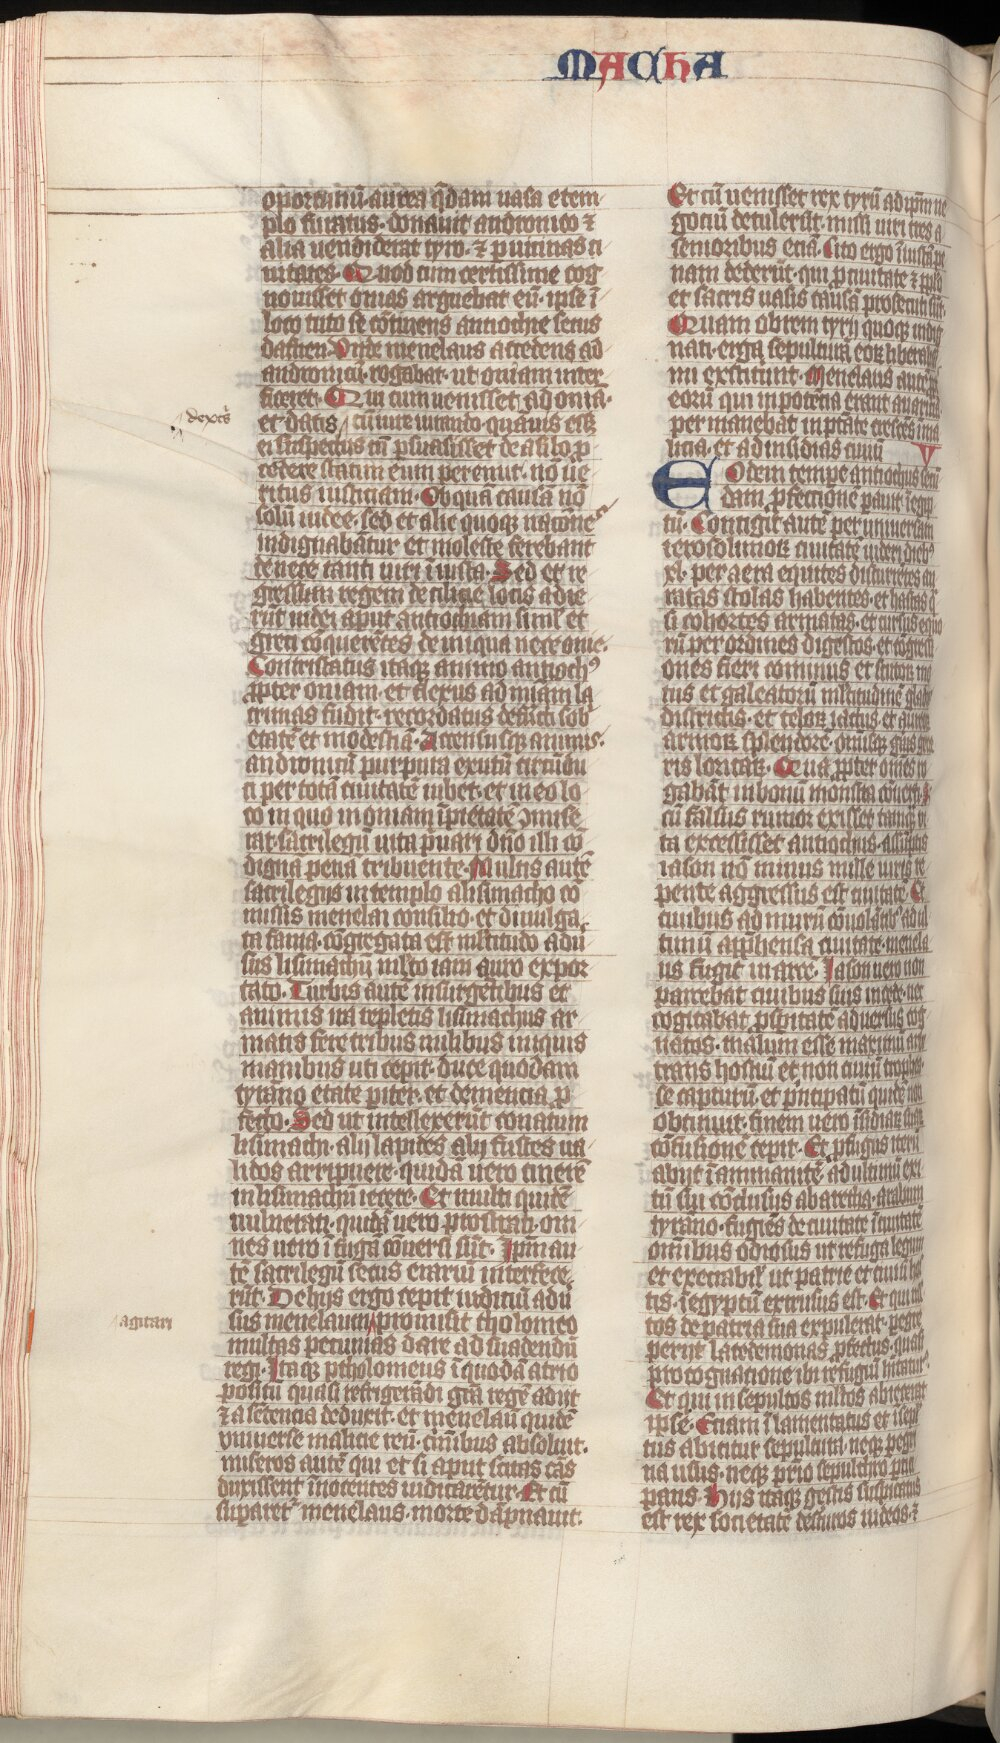 MACHA
oportunū aurea q̄dam uasa e tem
plo furatus. donauit andronico ⁊
alia uendiderat tyro. ⁊ p uicinas ci
uitates. Quod cum certissime cog
nouisset onias arguebat eū. ipse ī
loco tuto se cōtinens antiochie secus
dafnen. Vnde menelaus accedens ad
andronicū. rogabat. ut oniam inter
ficeret. Qui cum uenisset ad onia.
dext̄s
et datis / cū iure iurando. quāuis ess;
ei suspectus cū p suasisset de asilo p
cedere statim eum peremit. nō ue
ritus iusticiam. Ob qua causā nō
solū iudee. sed et alie quoq; nacōnes
indignabantur et moleste ferebant
de nece tanti uiri īiusta. Sed et re
gressum regem de cilicie locis adie
rūt iudei aput antiochiam simł et
greci cōquerētes de iniqua nece onie.
Contristatus itaq; animo antioch⁹
ꝓpter oniam. et flexus ad mīam la
crimas fudit. recordatus defūcti sob
etatē et modestiā. Accensusq; animis.
andronicū purpura exutū circūdu
ci per totā ciuitatē iubet. et in eo lo
co in quo in oniam īpietatē ɔmise
rat. sacrilegū uita p̄uari dn̄o illi cō
dignā penā tribuente. Multis autē
sacrilegijs in templo a lisimacho cō
missis menelai consilio. et diuulga
ta fama. cōgregata est mltitudo adū
sus lisimachū mlto iam auro expor
tato. Turbis autē insurgētibus et
animis ira repletis lisimachus ar
matis fere tribus milibus iniquis
manibus uti cepit. duce quodam
tyrāno etate p̄iter. et demencia p
fecto. Sed ut intellexerūt conatum
lisimachi. alij lapides alij fustes ua
lidos arripuere. quidā uero cinerē
in lisimachū iecere. Et multi quidē
uulnerati. quidā uero prostrati. om
nes uero ī fugā cōuersi sūt. Ipm̄ au
tē sacrilegū secus erariū interfece
rūt. De hijs ergo cepit iudiciū adū
agitari
sus menelaum / promisit tholomeo
multas pecunias dare ad suadendū
regi. Itaq; ptholomeus ī quodā atrio
positū quasi refrigerādi grā regē adijt
⁊ a sētencia deduxit. et menelaū quidē
vniuerse malicie reū. cīmībus absoluit.
miseros autē qui et si aput scitas cās
dixissent īnocentes iudicarētur. Et cū
supareť menelaus. morte dāpnauit.
Et cū uenisset rex tyrū ad ipm̄ ne
gociū detulerūt. missi uiri tres a
senioribus
Cito ergo īiustā pe
nam dederūt. qui p ciuitate ⁊ pplo
et sacris uasis causā prosecuti sūt.
Quam obrem tyrij quoq; indig
nati. erga sepulturā eoꝝ liberalis
mi extiterunt. Menelaus autē pp
eorū qui in potētia erant auaritiā
per manebat in ptāte cresces ī ma
licia. et ad insidias ciuiū V
Eodem tempe antiochus scdā
dam pfectione parauit ī egip
tū. Contigit autē per uniuersam
ierosolimoꝝ ciuitatē uideri dieb⁹
xl. per aera equites discurrētes au
ratas stolas habentes. et hastas q̄
si cohortes armatas. et cursus equo
rū per ordines digestos. et cōgressi
ones fieri cominus et scutoꝝ mo
tus et galeatorū mltitudinē gladijs
districtis. et teloꝝ iactus. et aureoꝝ
armoꝝ splendorē. omīsq; gn̄is
ris loricaꝝ. Qua ꝓpter omēs ro
gabāt in bonū monstra cōuerti. S;
cū falsus rumor exisset tamq; vi
ta excessisset antiochus. assūptis
iason nō minus mille uiris re
pente aggressus est ciuitatē. Et
ciuibus ad murū cōuolātib⁹ ad ul
timū app̄hensa ciuitate. menela
us fugit in arcē. Iason uero non
parcebat ciuibus suis in cede. nec
cogitabat pspitatē aduersus cog
natos. malum esse maximū arbi
trans hostiū et non ciuiū trophea
se capturū. et pncipatū quidē non
obtinuit. finem uero īsidiaꝝ suaꝝ
cōfusionē cepit. Et pfugus iterū
abijt ī ammanitē. ad ultimū exi
tiū sui cōclusus ab aretha. arabum
tyrāno. fugiēs de ciuitate ī ciuitatē
omībus odiosus ut refuga legum
et execrabiľ ut patrie et ciuiū hos
tis. ī egyptū extrusus est. Et qui ml
tos de patria sua expulerat. pegre
perijt lacedemonas pfectus. quasi
pro cognatione ibi refugiū hītur⁹.
Et qui insepultos mltos abiecerat
ipse. Etiam īlamentatus et īsepł
tus abicitur sepultura. neq; pegri
na usus. neq; p̄rio sepulchro ptici
pans. Hijs itaq; gestis suspicatus
est rex societatē deserturos iudeos. ⁊